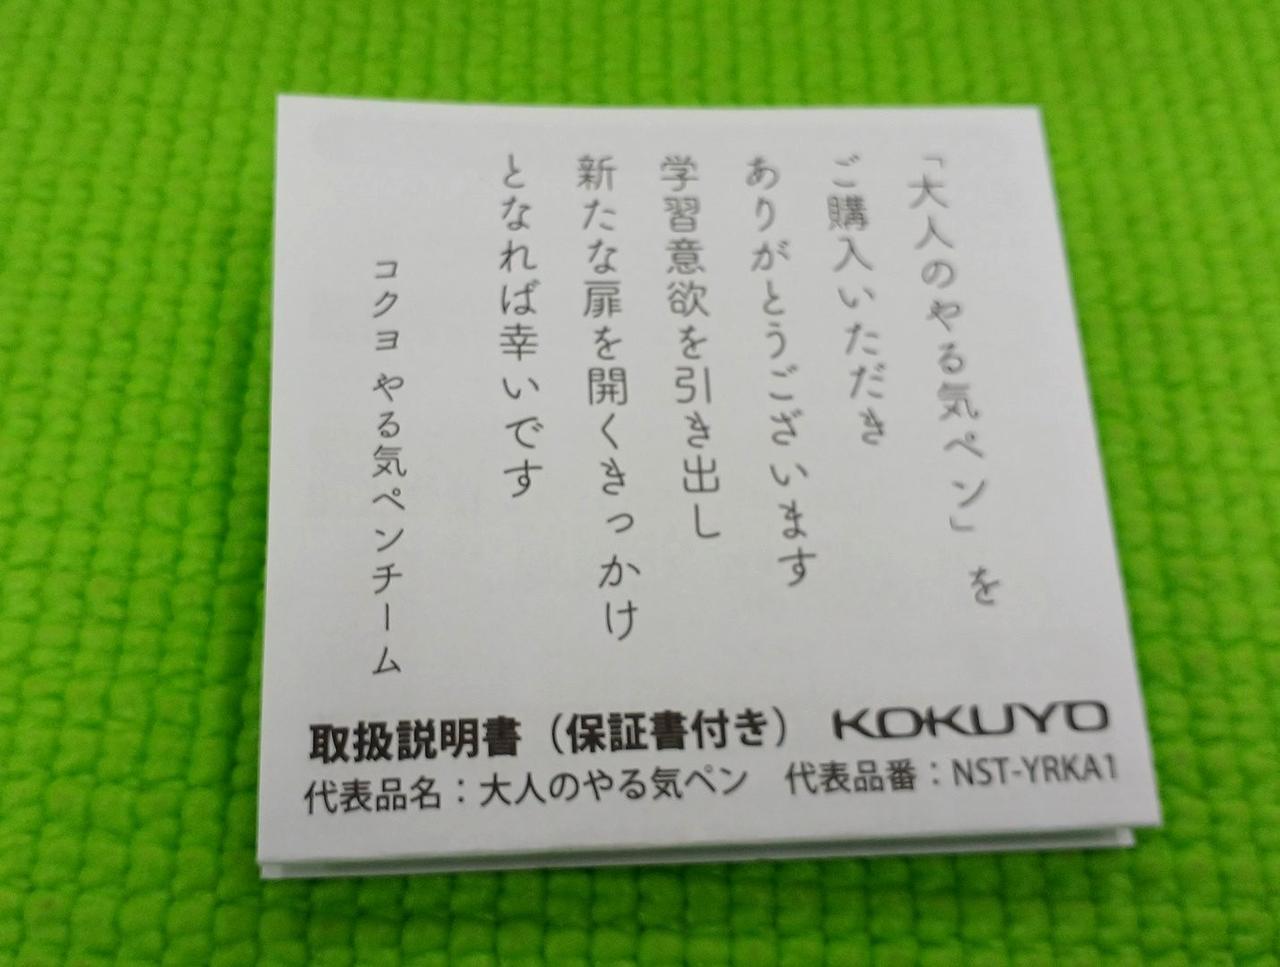 「大人のやる気ペン」を
ご購入いただき
ありがとうございます
学習意欲を引き出し
新たな扉を開くきっかけ
となれば幸いです
コクヨ やる気ペンチーム
取扱説明書（保証書付き） KOKUYO
代表品名：大人のやる気ペン 代表品番：NST-YRKA1